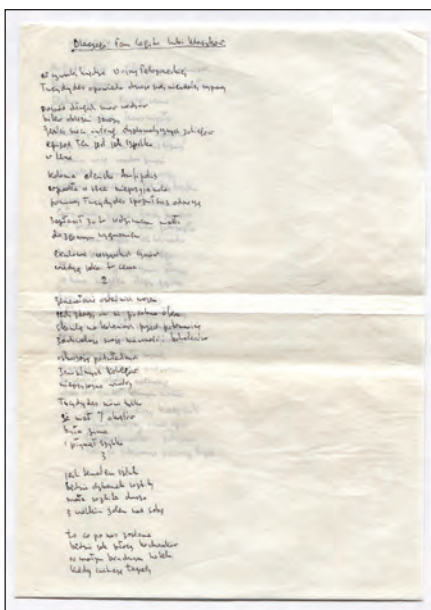 Dlaczego Pan Cogito lubi klasyków
w czwartej księdze Wojny Peloponeskiej
Tucydydes opowiada dzieje swej nieudanej wyprawy
pośród długich mów wodzów
bitew oblężeń zarazy
gęstej sieci intryg dyplomatycznych zabiegów
epizod ten jest jak szpilka
w lesie
kolonia ateńska Amfipolis
wpadła w ręce
ponieważ Tucydydes spóźnił się z odsieczą
zapłacił za to rodzinnemu miastu
dozgonnym wygnaniem
exulowie wszystkich czasów
wiedzą jaka to cena
2
generałowie ostatnich wojen
jeśli zdarzy się podobna afera
skomlą na kolanach przed potomnością
zachwalają swoje i bohaterstwo
oskarżają podwładnych
zawistnych kolegów
nieprzyjazne wiatry
Tucydydes mówi tylko
że miał 7 okrętów
była zima
i płynął szybko
3
jeśli tematem sztuki
będzie dzbanek rozbity
mała rozbita dusza
z wielkim żalem nad sobą
to co po nas zostanie
będzie jak płacz kochanków
w małym brudnym hotelu
kiedy świtają tapety